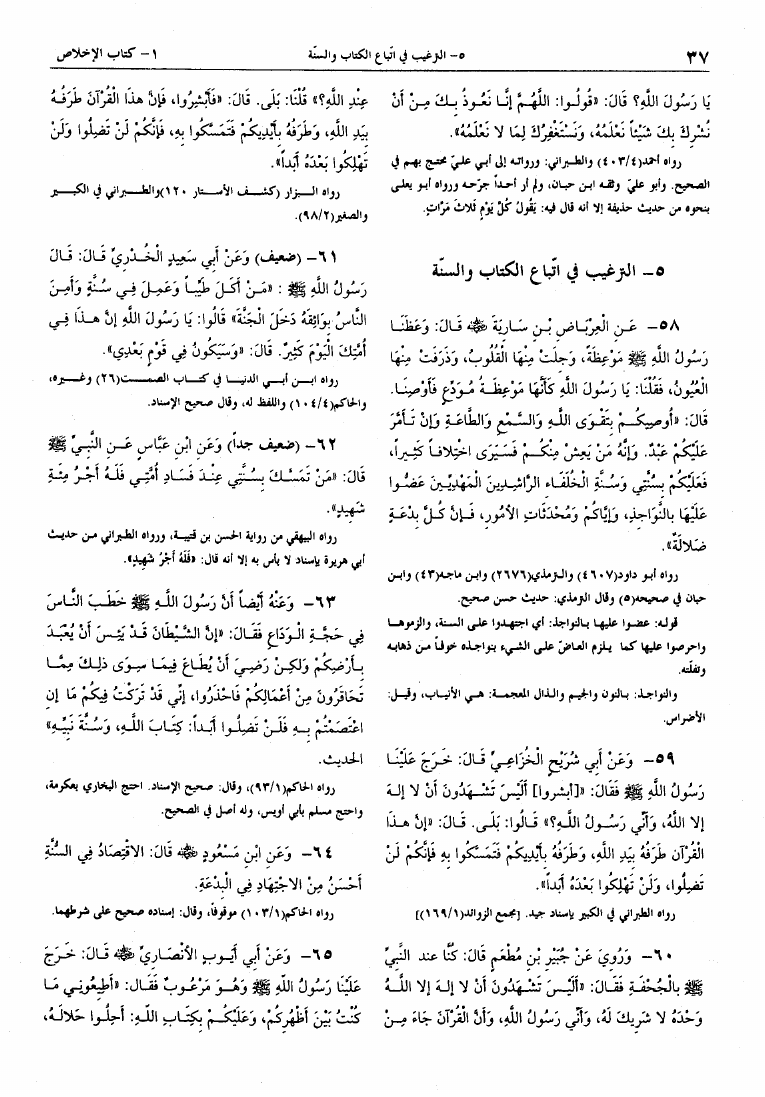 ٣٧
٥- الترغيب في اتّباع الكتاب والسنّة
١- كتاب الإخلاص
يَا رَسُولَ اللهِ؟ قَالَ: «قُولُوا: اللهُمَّ إِنَّا نَعُوذُ بِكَ مِنْ أَنْ
نُشْرِكَ بِكَ شَيْئاً نَعْلَمُهُ، وَنَسْتَغْفِرُكَ لِمَا لا نَعْلَمُهُ».
رواه أحمد(٤/٤٠٣) والطبراني: ورواته إلى أبي عليّ محتج بهم في
الصحيح. وأبو عليّ وثقه ابن حبان، ولم أر أحداً جرّحه ورواه أبو يعلى
بنحوه من حديث حذيفة إلا أنه قال فيه: يَقُولُ كُلَّ يَوْمٍ ثَلاثَ مَرَّاتٍ.
٥- الترغيب في اتّباع الكتاب والسنّة
٥٨- عَنِ العِرْبَاضِ بْنِ سَارِيَةَ ﷺ قَالَ: وَعَظَنَا
رَسُولُ اللهِ ﷺ مَوْعِظَةً، وَجِلَتْ مِنْهَا القُلُوبُ، وَذَرَفَتْ مِنْهَا
الْعُيُونُ، فَقُلْنَا: يَا رَسُولَ اللهِ كَأَنَّهَا مَوْعِظَةُ مُوَدِّعٍ فَأَوْصِنَا.
قَالَ: «أُوصِيكُمْ بِتَقْوَى اللهِ وَالسَّمْعِ وَالطَّاعَةِ وَإِنْ تَأَمَّرَ
عَلَيْكُمْ عَبْدٌ. وَإِنَّهُ مَنْ يَعِشْ مِنْكُمْ فَسَيَرَى اخْتِلافاً كَثِيراً،
فَعَلَيْكُمْ بِسُنَّتِي وَسُنَّةِ الْخُلَفَاءِ الرَّاشِدِينَ الْمَهْدِيِّينَ عَضُّوا
عَلَيْهَا بِالنَّوَاجِذِ، وَإِيَّاكُمْ وَمُحْدَثَاتِ الأمُورِ، فَإِنَّ كُلَّ بِدْعَةٍ
ضَلالَةٌ».
رواه أبو داود(٤٦٠٧) والترمذي(٢٦٧٦) وابن ماجه(٤٣) وابن
حبان في صحيحه(٥) وقال الترمذي: حديث حسن صحيح.
قوله: عضوا عليها بالنواجذ: أي اجتهدوا على السنة، والزموها
واحرصوا عليها كما يلزم العاضّ على الشيء بنواجذه خوفاً من ذهابه
وتفلّته.
والنواجذ: بالنون والجيم والذال المعجمة: هي الأنياب، وقيل:
الأضراس.
٥٩- وَعَنْ أَبِي شُرَيْحٍ الْخُزَاعِيِّ قَالَ: خَرَجَ عَلَيْنَا
رَسُولُ اللهِ ﷺ فَقَالَ: «[أبشروا] أَلَيْسَ تَشْهَدُونَ أَنْ لا إِلهَ
إِلا اللهُ، وَأَنِّي رَسُولُ اللهِ؟» قَالُوا: بَلَى. قَالَ: «إِنَّ هذَا
الْقُرْآنَ طَرَفُهُ بِيَدِ اللهِ، وَطَرَفُهُ بِأَيْدِيكُمْ فَتَمَسَّكُوا بِهِ فَإِنَّكُمْ لَنْ
تَضِلُّوا، وَلَنْ تَهْلِكُوا بَعْدَهُ أَبَداً».
رواه الطبراني في الكبير بإسناد جيد. [مجمع الزوائد(١/١٦٩)]
٦٠- وَرُوِيَ عَنْ جُبَيْرِ بْنِ مُطْعَمٍ قَالَ: كُنَّا عند النَّبِيِّ
ﷺ بِالْجُحْفَةِ فَقَالَ: «أَلَيْسَ تَشْهَدُونَ أَنْ لا إِلهَ إِلا اللهُ
وَحْدَهُ لا شَرِيكَ لَهُ، وَأَنِّي رَسُولُ اللهِ، وَأَنَّ الْقُرْآنَ جَاءَ مِنْ
عِنْدِ اللهِ؟» قُلْنَا: بَلَى. قَالَ: «فَأَبْشِرُوا، فَإِنَّ هذَا الْقُرْآنَ طَرَفُهُ
بِيَدِ اللهِ، وَطَرَفُهُ بِأَيْدِيكُمْ فَتَمَسَّكُوا بِهِ، فَإِنَّكُمْ لَنْ تَضِلُّوا وَلَنْ
تَهْلِكُوا بَعْدَهُ أَبَداً».
رواه البزار (كشف الأستار ١٢٠)والطبراني في الكبير
والصغير(٢/٩٨).
٦١- (ضعيف) وَعَنْ أَبِي سَعِيدٍ الْخُدْرِيِّ قَالَ: قَالَ
رَسُولُ اللهِ ﷺ : «مَنْ أَكَلَ طَيِّباً وَعَمِلَ فِي سُنَّةٍ وَأَمِنَ
النَّاسُ بَوَائِقَهُ دَخَلَ الْجَنَّةَ» قَالُوا: يَا رَسُولَ اللهِ إِنَّ هذَا فِي
أُمَّتِكَ الْيَوْمَ كَثِيرٌ. قَالَ: «وَسَيَكُونُ فِي قَوْمٍ بَعْدِي».
رواه ابن أبي الدنيا في كتاب الصمت(٢٦) وغيره،
والحاكم(٤/١٠٤) واللفظ له، وقال صحيح الإسناد.
٦٢- (ضعيف جداً) وَعَنِ ابْنِ عَبَّاسٍ عَنِ النَّبِيِّ ﷺ
قَالَ: «مَنْ تَمَسَّكَ بِسُنَّتِي عِنْدَ فَسَادِ أُمَّتِي فَلَهُ أَجْرُ مِئَةِ
شَهِيدٍ».
رواه البيهقي من رواية الحسن بن قتيبة، ورواه الطبراني من حديث
أبي هريرة بإسناد لا بأس به إلا أنه قال: «فَلَهُ أَجْرُ شَهِيدٍ».
٦٣- وَعَنْهُ أَيْضاً أَنَّ رَسُولَ اللهِ ﷺ خَطَبَ النَّاسَ
فِي حَجَّةِ الْوَدَاعِ فَقَالَ: «إِنَّ الشَّيْطَانَ قَدْ يَئِسَ أَنْ يُعْبَدَ
بِأَرْضِكُمْ وَلكِنْ رَضِيَ أَنْ يُطَاعَ فِيمَا سِوَى ذلِكَ مِمَّا
تَحَاقَرُونَ مِنْ أَعْمَالِكُمْ فَاحْذَرُوا، إِنِّي قَدْ تَرَكْتُ فِيكُمْ مَا إِن
اعْتَصَمْتُمْ بِهِ فَلَنْ تَضِلُّوا أَبَداً: كِتَابَ اللهِ، وَسُنَّةَ نَبِيِّهِ»
الحديث.
رواه الحاكم(١/٩٣)، وقال: صحيح الإسناد. احتج البخاري بعكرمة،
واحتج مسلم بأبي أويس، وله أصل في الصحيح.
٦٤- وَعَنِ ابْنِ مَسْعُودٍ ﷺ قَالَ: الاقْتِصَادُ فِي السُّنَّةِ
أَحْسَنُ مِنْ الاجْتِهَادِ فِي الْبِدْعَةِ.
رواه الحاكم(١/١٠٣) موقوفاً، وقال: إسناده صحيح على شرطهما.
٦٥- وَعَنْ أَبِي أَيُوبَ الأَنْصَارِيِّ ﷺ قَالَ: خَرَجَ
عَلَيْنَا رَسُولُ اللّهِ ﷺ وَهُوَ مَرْعُوبٌ فَقَالَ: «أَطِيعُونِي مَا
كُنْتُ بَيْنَ أَظْهُرِكُمْ، وَعَلَيْكُمْ بِكِتَابِ اللهِ: أَحِلُّوا حَلالَهُ،